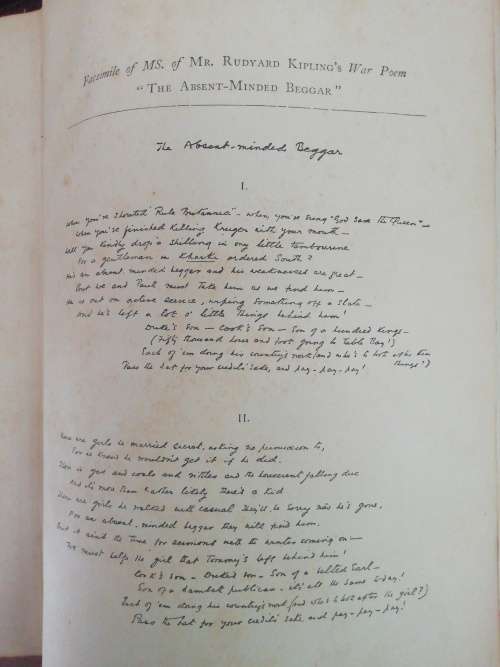 Facsimile of MS. of Mr. Rudyard Kipling's War Poem
"The Absent-Minded Beggar"
The Absent-minded Beggar
I.
When you've shouted "Rule Britannia" - when you've sung "God Save the Queen" -
When you've finished killing Kruger with your mouth -
Will you kindly drop a shilling in my little tambourine
For a gentleman in Kharki ordered South?
He's an absent minded beggar and his weaknesses are great -
But we and Paul must take him as we find him -
He is out on active service, wiping something off a slate -
And he's left a lot o' little things behind him!
Duke's Son - Cook's Son - Son of a hundred Kings -
(Fifty thousand horse and foot going to Table Bay!)
Each of 'em doing his country's work (and who's to look after their
things?)
Pass the hat for your credit's sake, and pay - pay - pay!
II.
There are girls he married secret, asking no permission to,
For he knew he wouldn't get it if he did.
There is gas and coals and vittles and the house rent falling due
And it's more than rather likely there's a kid
There are girls he walked with casual they'll be sorry now he's gone,
For an absent-minded beggar they will find him.
But it ain't the time for sermons with the winter coming on -
We must help the girl that Tommy's left behind him!
Cook's son - Duke's son - Son of a belted Earl -
Son of a Lambeth publican - it's all the same to-day!
Each of 'em doing his country's work (and who's to look after the girl?)
Pass the hat for your credit's sake and pay - pay - pay!